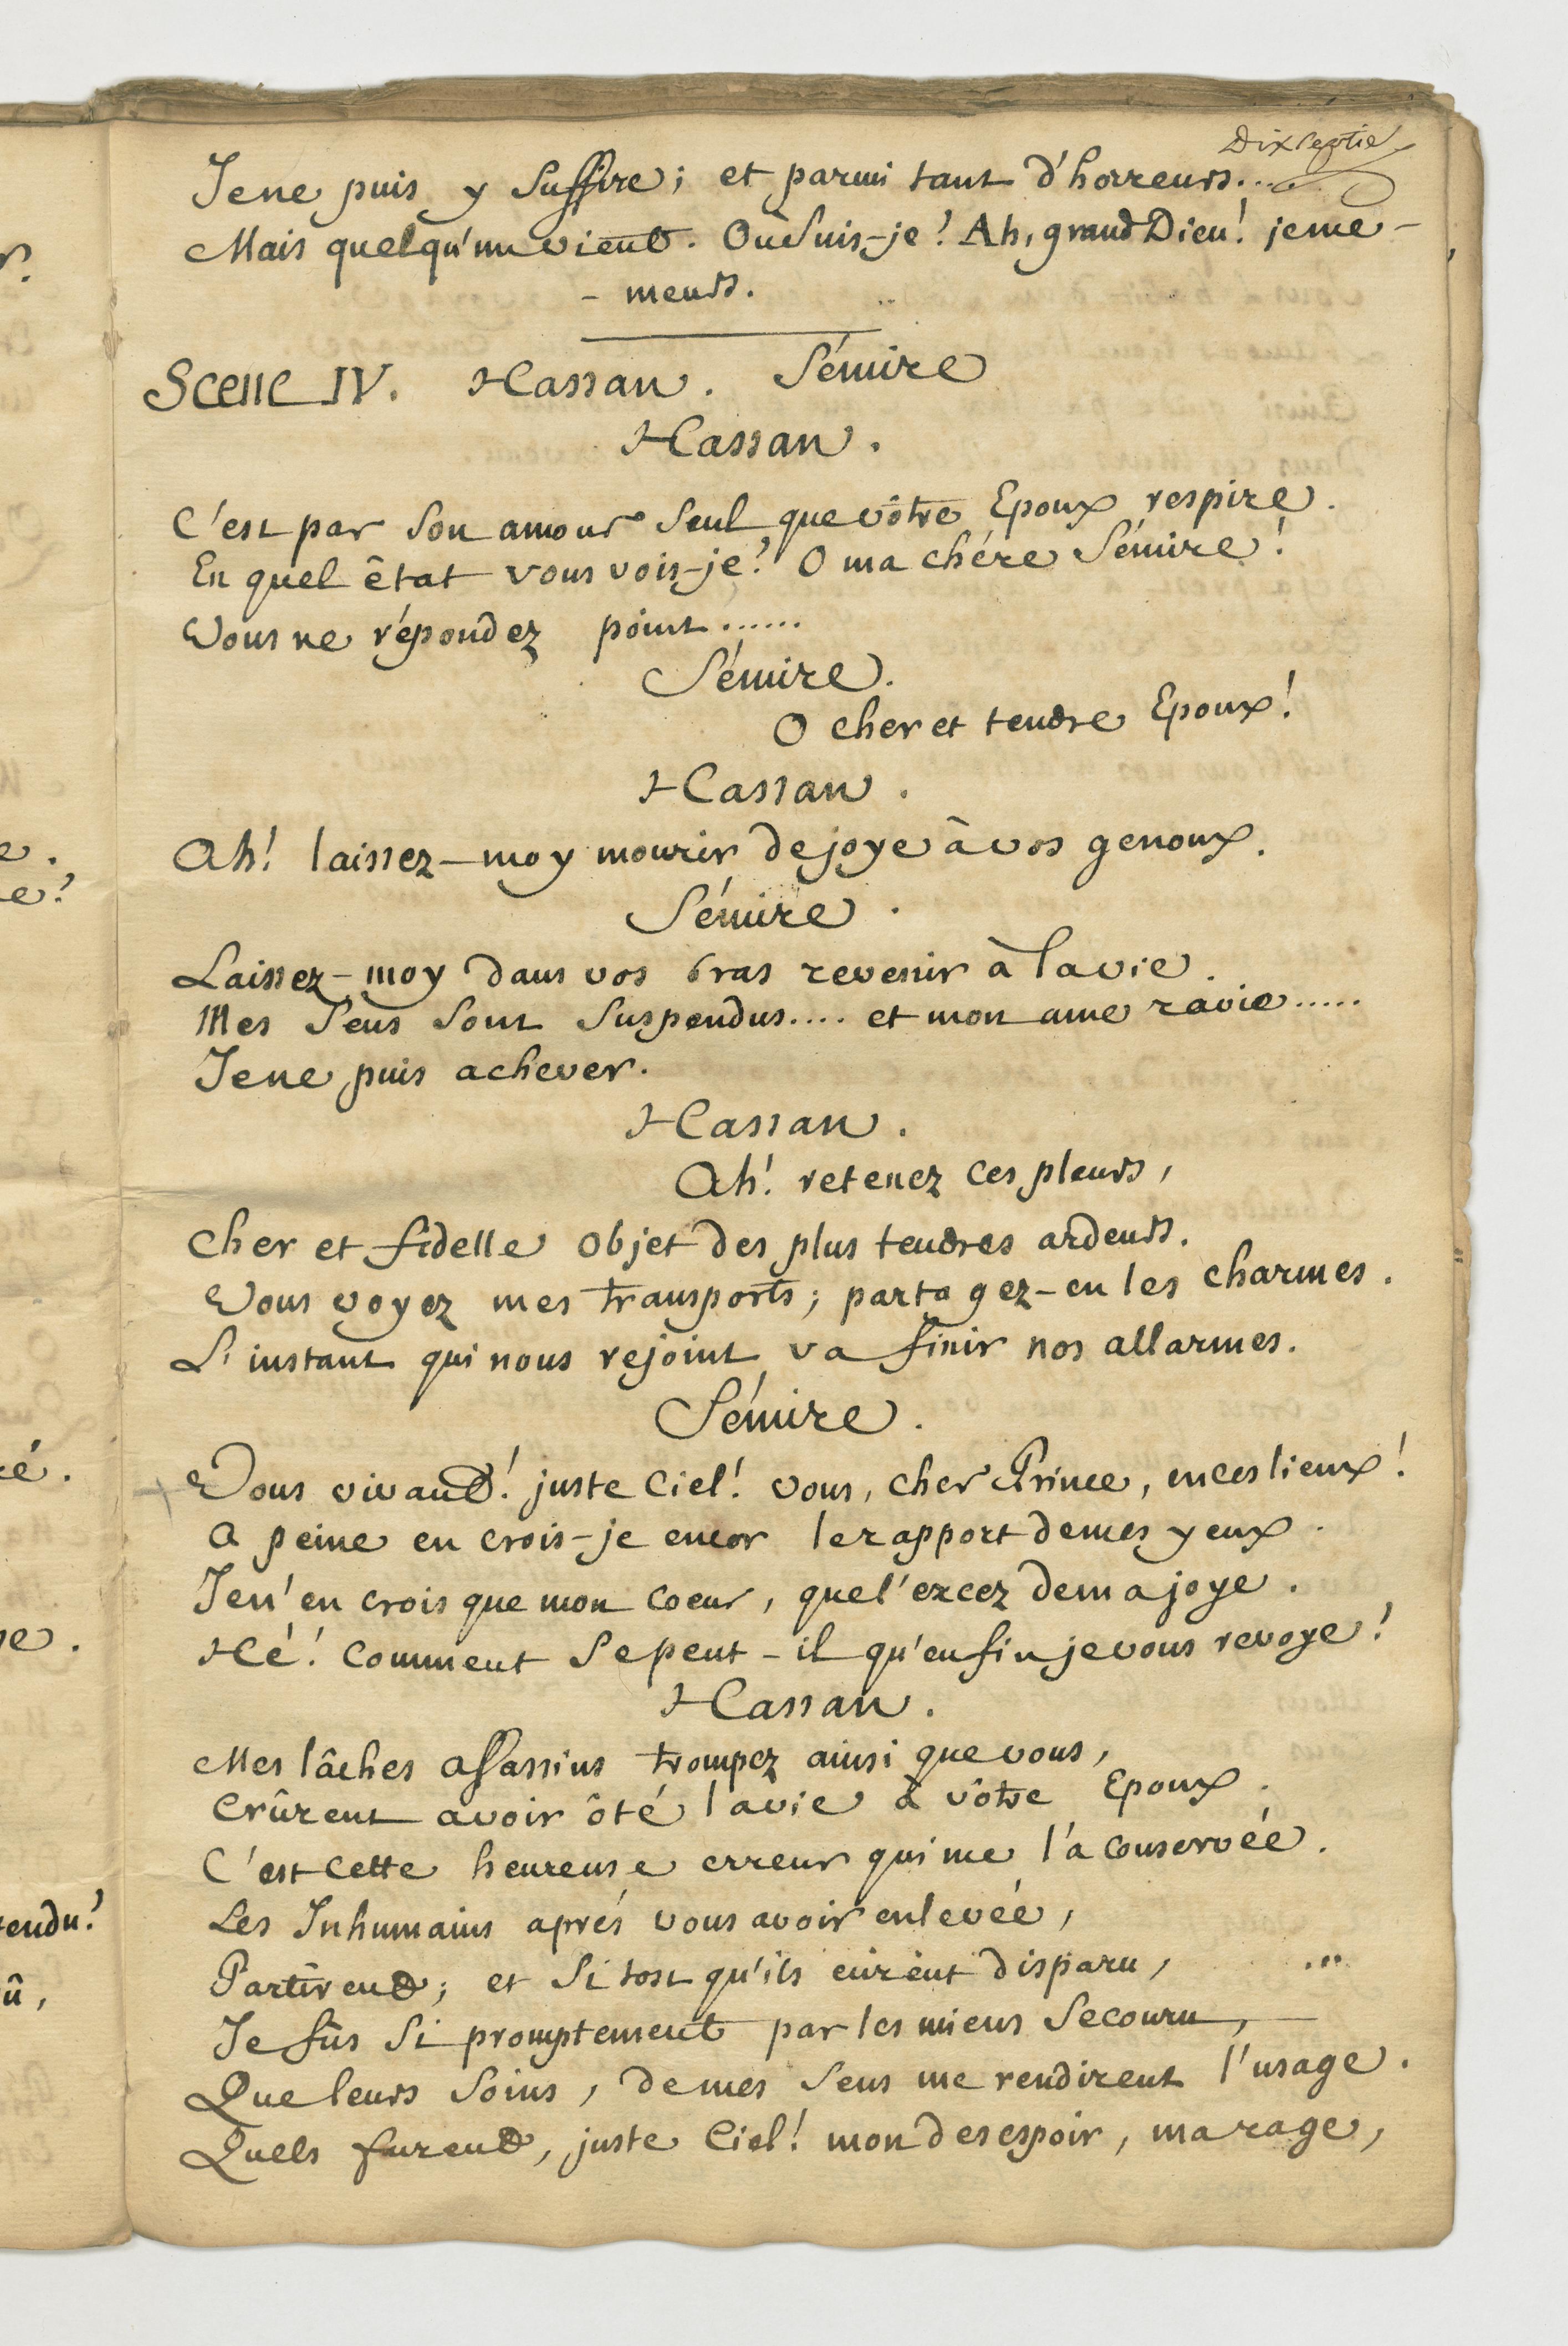 Dixseptie
Je ne puis y suffire; et parmi tant d'horreurs....
Mais quelqu'un vient. Où suis-je! Ah, grand Dieu! je me-
- meurs.
Scene IV. Hassan. Sémire
Hassan.
C'est par son amour seul que vôtre Epoux respire.
En quel êtat vous vois-je? O ma chére Sémire!
Vous ne répondez point......
Sémire.
O cher et tendre Epoux!
Hassan.
Ah! laissez-moy mourir de joye à vos genoux.
Sémire.
Laissez-moy dans vos bras revenir à la vie.
Mes sens sont suspendus.... et mon ame ravie.....
Je ne puis achever.
Hassan.
Ah! retenez ces pleurs,
Cher et fidelle objet des plus tendres ardeurs.
Vous voyez mes transports; partagez-en les charmes.
L'instant qui nous rejoint va finir nos allarmes.
Sémire.
Vous vivant! juste Ciel! vous, cher Prince, en ces lieux!
A peine en crois-je encor le rapport de mes yeux.
Je n'en crois que mon coeur, que l'excez de ma joye.
Hé! comment se peut-il qu'enfin je vous revoye!
Hassan.
Mes lâches assassins trompez ainsi que vous,
Crûrent avoir ôté la vie à vôtre Epoux.
C'est cette heureuse erreur qui me l'a conservée.
Les Inhumains aprés vous avoir enlevée,
Partirent; et si tost qu'ils eurent disparu,
Je fûs si promptement par les miens secouru,
Que leurs soins, de mes sens me rendirent l'usage.
Quels furent, juste Ciel! mon desespoir, ma rage,